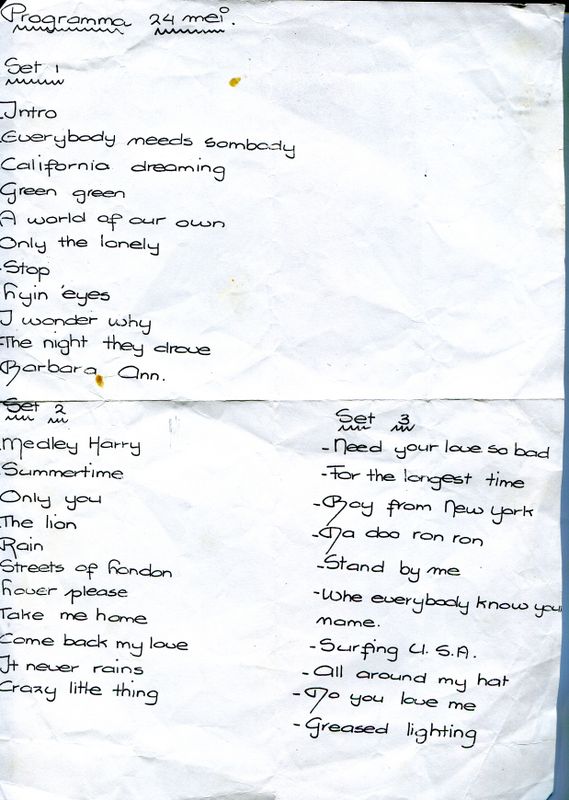 Programma 24 mei.
Set 1
Intro
Everybody needs sombody
California dreaming
Green green
A world of our own
Only the lonely
Stop
Lyin 'eyes
I wonder why
The night they drove
Barbara Ann.
Set 2
Medley Harry
Summertime
Only you
The lion
Rain
Streets of London
Lover please
Take me home
Come back my love
It never rains
Crazy little thing
Set 3
- Need your love so bad
- For the longest time
- Boy from New york
- Da doo ron ron
- Stand by me
- Whe everybody know your
name.
- Surfing U.S.A.
- All around my hat
- Do you love me
- Greased lighting